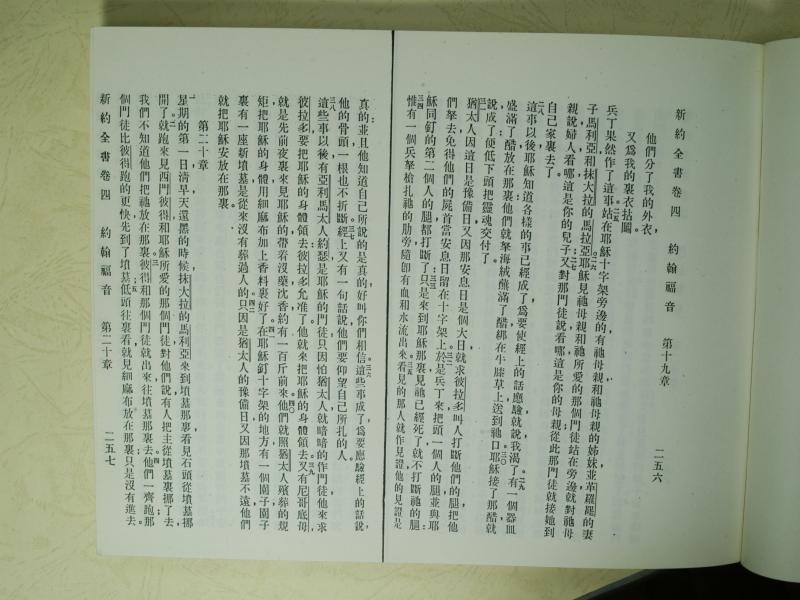 新約全書卷四 約翰福音 第十九章 二五六
他們分了我的外衣、
又爲我的裏衣拈鬮
兵丁果然作了這事站在耶穌十字架旁邊的有祂母親和祂母親的姊妹並革羅罷的妻
子馬利亞和抹大拉的馬拉亞耶穌見祂母親和祂所愛的那個門徒站在旁邊就對祂母
親說婦人看哪這是你的兒子又對那門徒說看哪這是你的母親從此那門徒就接她到
自己家裏去了
這事以後耶穌知道各樣的事已經成了爲要使經上的話應驗就說我渴了有一個器皿
盛滿了醋放在那裏他們就拏海絨蘸滿了醋綁在牛膝草上送到祂口耶穌接了那醋就
說成了便低下頭把靈魂交付了
猶太人因這日是豫備日又因那安息日是個大日就求彼拉多叫人打斷他們的腿把他
們拏去免得他們的屍首當安息日留在十字架上於是兵丁來把頭一個人的腿並與耶
穌同釘的第二個人的腿都打斷了只是來到耶穌那裏見祂已經死了就不打斷祂的腿
惟有一個兵拏槍扎祂的肋旁隨卽有血和水流出來看見的那人就作見證他的見證是
真的並且他知道自己所說的是真的好叫你們相信這些事成了爲要應驗經上的話說
他的骨頭一根也不折斷經上又有一句話說他們要仰望自己所扎的人
這些事以後有亞利馬太人約瑟是耶穌的門徒只因怕猶太人就暗暗的作門徒他來求
彼拉多要把耶穌的身體領去彼拉多允准了他就來把耶穌的身體領去又有尼哥底母
就是先前夜裏來見耶穌的帶着沒藥沈香約有一百斤前來他們就照猶太人殯葬的規
矩把耶穌的身體用細麻布加上香料裹好了在耶穌釘十字架的地方有一個園子園子
裏有一座新墳墓是從來沒有葬過人的只因是猶太人的豫備日又因那墳墓不遠他們
就把耶穌安放在那裏
第二十章
星期的第一日清早天還黑的時候抹大拉的馬利亞來到墳墓那裏看見石頭從墳墓挪
開了就跑來見西門彼得和耶穌所愛的那個門徒對他們說有人把主從墳墓裏挪了去
我們不知道他們把祂放在那裏彼得和那個門徒就出來往墳墓那裏去他們一齊跑那
個門徒比彼得跑的更快先到了墳墓低頭往裏看就見細麻布放在那裏只是沒有進去
新約全書卷四 約翰福音 第二十章 二五七